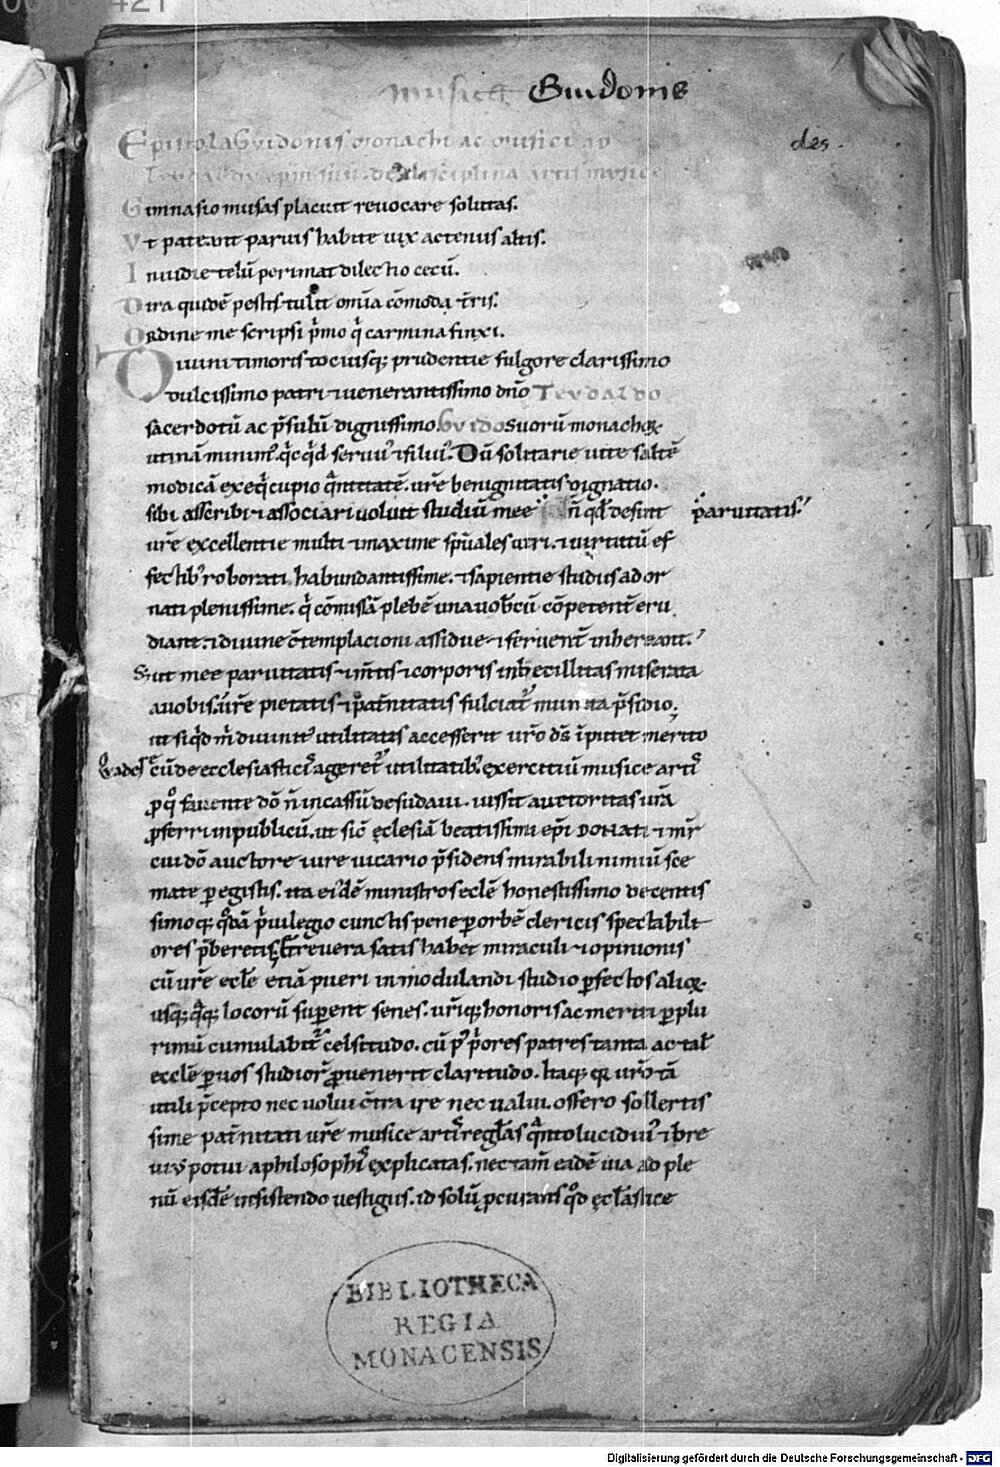 Musica Guidonis
des
Epistola Guidonis monachi ac musici ad
Teudaldu epm sui. de disciplina artis musice
Gimnasio musas placuit revocare solutas.
Vt pateant parvis habite vix actenus altis.
Invidie telu perimat dilectio cecu.
Dira quide pestis tulit omia comoda tris.
Ordine me scripsi pmo q carmina finxi.
Divini timoris tocius q; prudentie fulgore clarissimo
dulcissimo patri & venerantissimo dno Teudaldo
sacerdotu ac psulu dignissimo. Guido suoru monachor
utina minim. servus & filius. Du solitarie vite salte
modica exeq cupio qntitate. vre benignitatis dignatio.
sibi asscribi & associari voluit studiu mee n qd desint pparvitatis.
vre excellentie multi & maxime spuales viri. & virtutu ef
fectib' roborati habundantissime. & sapientie studiis ador
nati plenissime. q comissa plebe una vobcu copetent eru
diant. & divine ctemplacioni assidue & fervent inhereant.
Sut mee parvitatis & mtis & corporis inbecillitas miserata
a vobis. vre pietatis & patnitatis fulciat munita psidio.
ut siqd m divinit utilitatis accesserit vro ds iputet merito
Qua de cu de ecclesiastici ageret utilitatib. exercitiu musice arti
p q favente do n incassu desudavi. iussit auctoritas vra
pferri in publicu. ut sic eclesia beatissimi epi DONATI & mr
cui do auctore iure vicario psidens mirabili nimiu sce
mate peregistis. ita eide ministros ecle honestissimo decentis
simoq; qda pvilegio cunctis pene p orbe clericis spectabili
ores pberetis. Et revera satis habet miraculi & opinionis
cu vre ecle etia pueri in modulandi studio pfectos alior
usq; qaq; locoru supent senes. vriq; honoris ac meriti pplu
rimu cumulabit celsitudo. cu p pores patres tanta ac tal
eccle p vos studior pvenerit claritudo. Itaq; q vro ta
utili pcepto nec volui ctra ire nec valui. offero sollertis
sime patnitati vre musice arti reglas qnto lucidius & bre
viꝰ potui a philosophi explicatas. nec tam eade via ad ple
nu eisde insistendo vestigiis. id solu pcurans qd eclasice
BIBLIOTHECA
REGIA
MONACENSIS
Digitalisierung gefördert durch die Deutsche Forschungsgemeinschaft - DFG